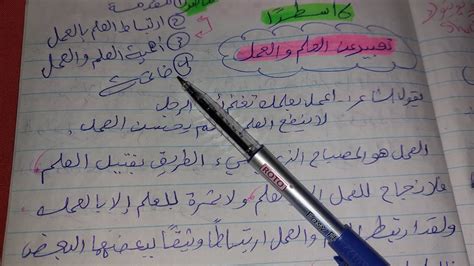 ٦ اسطر
② ارتباط العلم بالعمل
③ أهمية العلم والعمل
④ خاتمة
تعبير عن العلم والعمل
يقول الشاعر: اعمل بعلمك تغنم أيها الرجل
لا ينفع العلم إن لم يحسن العمل
العمل هو المصباح الذي يضيء الطريق بفتيل العلم
فلا نجاح للعمل إلا بالعلم ولا ثمرة للعلم إلا بالعمل
ولقد ارتبط العلم والعمل ارتباطًا وثيقًا ببعضهما البعض
ROTO